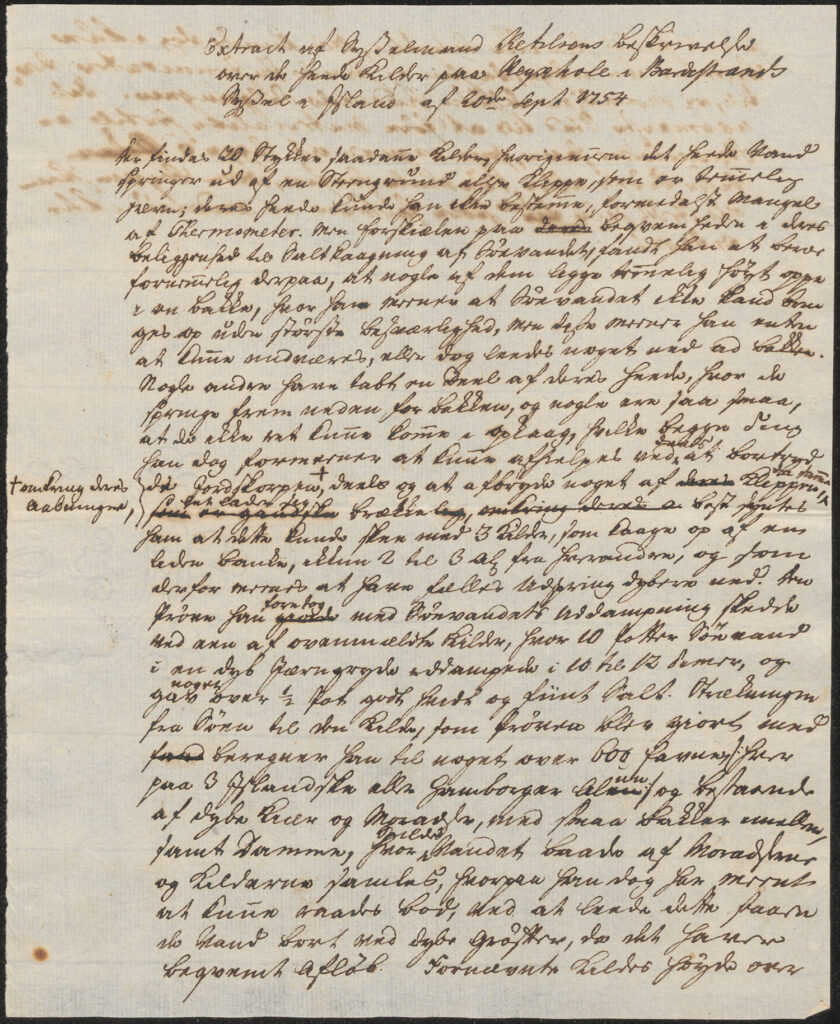 Extract af Sysselmand Ketilsens beskrivelse
over de heede Kilder paa Reychole i Bardestrands
Syssel i Island af 20de Sept 1754
Der findes 20 Stykker saadanne Kilder, hvorigienem det heede Vand
springer ud af en Steengrund eller Klippe, som er temmelig
jævn; deres heede kunde han ikke bestemme, formedelst Mangel
af Thermometer. Men forskiælen paa deres beqvemheden i deres
beliggenhed til Saltkaagning af Søevandet, fandt han at beroe
fornemmelig derpaa, at nogle af dem ligge temmelig høyt oppe
i en bakke, hvor han meener at Søevandet ikke kand brin
ges op uden største besværlighed, men disse meener han enten
at kunne undværes, eller dog leedes noget ned ad bakken.
Nogle andre have tabt en Deel af deres heede, hvor de
springe frem neden for bakken, og nogle ere saa smaa,
at de ikke ret kunne komme i opkaag, hvilke begge Ting
han dog formeener at kunne afhielpes ved, deels at bortrydde
† omkring deres
Aabninger,
de Jordskorpen†, deels og at afbryde noget af deres Klippen
som er gandske brækkelig, omkring deres a best syntes
ham at dette kunde skee med 3 Kilder, som kaage op af en
liden banke, ikkun 2 til 3 Al fra hverandre, og som
derfor meenes at have fælles Udspring dybere ned. Den
Prøve han giorde foretog med Søevandets Uddampning skeedde
ved een af ovenmældte Kilder, hvor 10 Potter Søevand
i en dyb Jærngryde uddampede i 10 til 12 Timer, og
gav noget over ½ Pot godt hvidt og fiint Salt. Strækningen
fra Søen til den Kilde, som Prøven blev giort med
fand beregner han til noget over 600 favne /: hver
paa 3 Islandske eller Hamborger Alnum :/ og bestaaende
af dybe Kiær og Moradser, med smaa bakker imellem,
samt Damme, hvor Vandet baade af Moradserne
og Kilderne samles, hvorpaa han dog har meent
at kunne raades bod, ved at leede dette staaen
de Vand bort ved dybe Grøfter, da det haver
beqvemt Afløb. Fornævnte Kildes høyde over